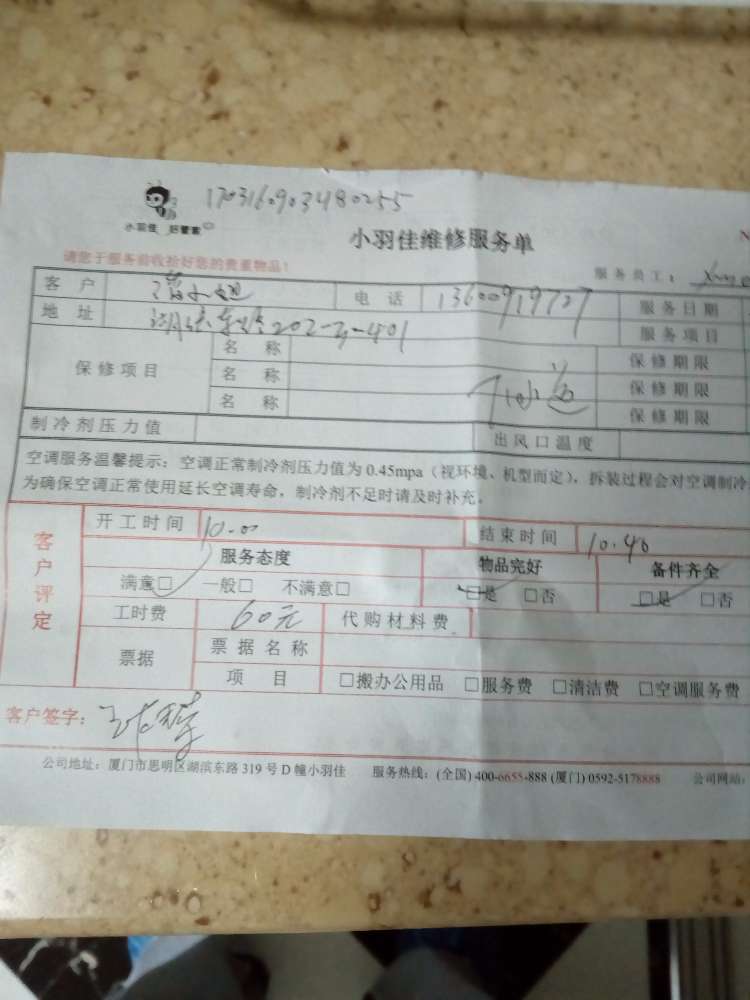 170316903480255
小羽佳 好管家
小羽佳维修服务单
N
请您于服务前收拾好您的贵重物品！
服务员工：
客户 小姐 电话 13600919727 服务日期
地址 湖滨东路202-2-401 服务项目
保修项目 名称 保修期限
名称 保修期限
名称 保修期限
制冷剂压力值 出风口温度
空调服务温馨提示：空调正常制冷剂压力值为0.45mpa（视环境、机型而定），拆装过程会对空调制冷
为确保空调正常使用延长空调寿命，制冷剂不足时请及时补充。
客户评定
开工时间 10.00 结束时间 10.40
服务态度 物品完好 备件齐全
满意□ 一般□ 不满意□ □是 □否 □是 □否
工时费 60元 代购材料费
票据 票据名称
项目 □搬办公用品 □服务费 □清洁费 □空调服务费
客户签字：
公司地址：厦门市思明区湖滨东路319号D幢小羽佳 服务热线：(全国) 400-6655-888 (厦门) 0592-5178888 公司网站：